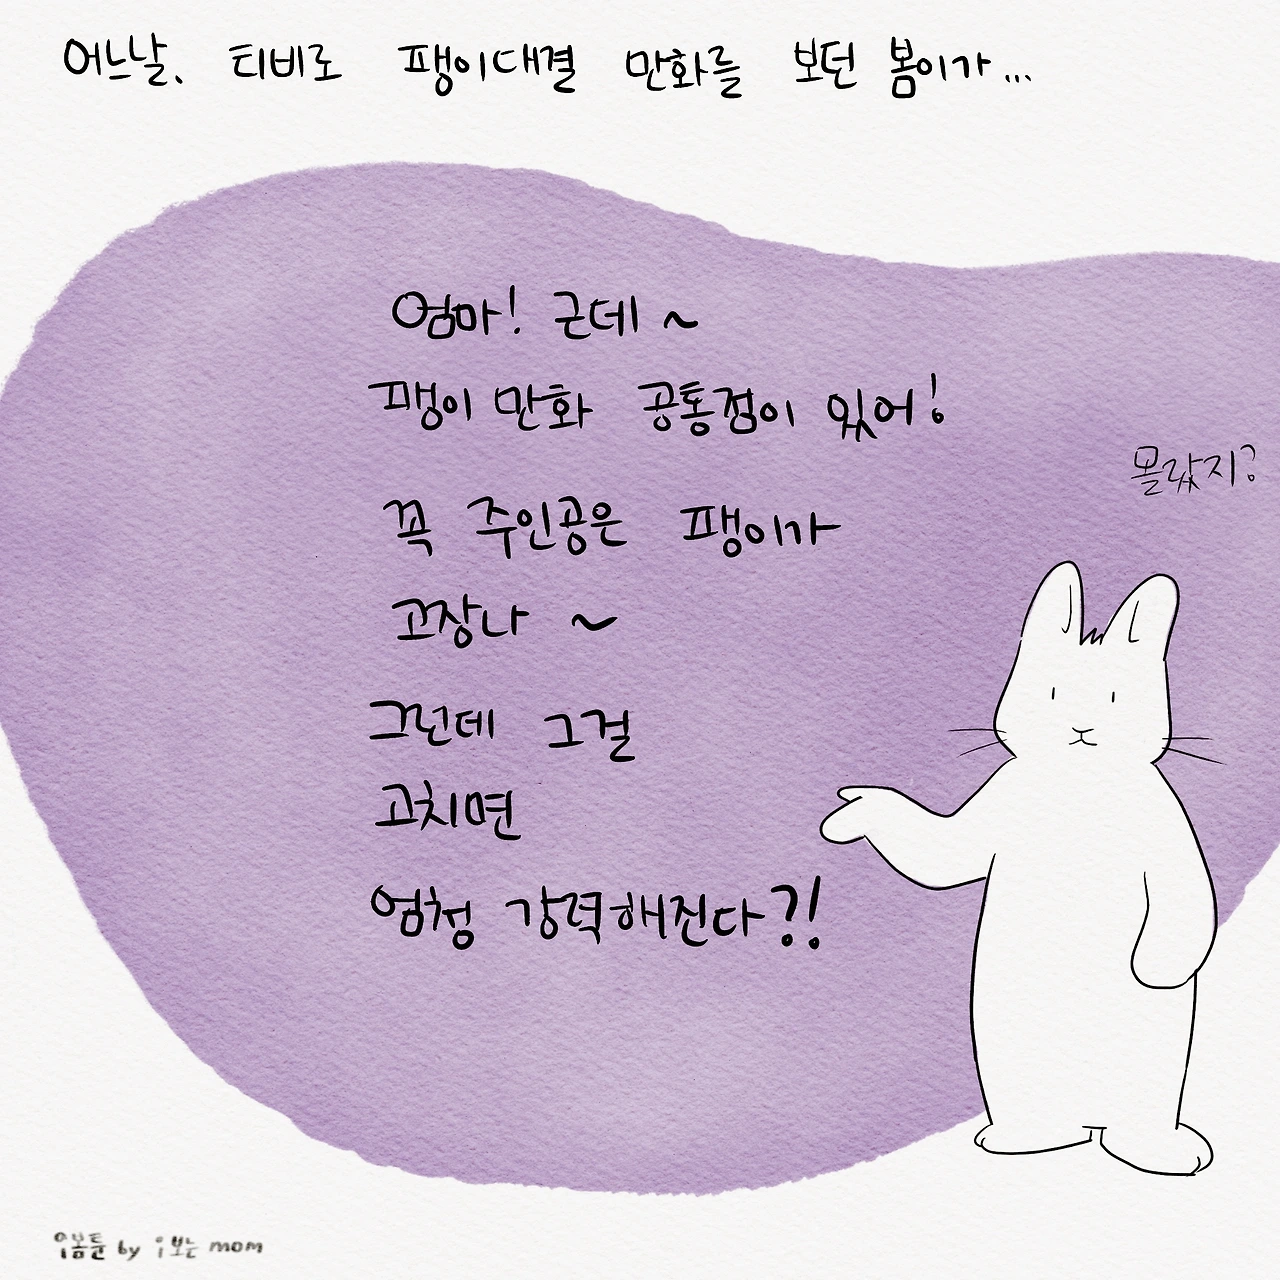 어느날, 티비로 팽이대결 만화를 보던 봄이가...
엄마! 근데~
팽이 만화 공통점이 있어!
몰랐지?
꼭 주인공은 팽이가
고장나~
그런데 그걸
고치면
엄청 강력해진다?!
by mom